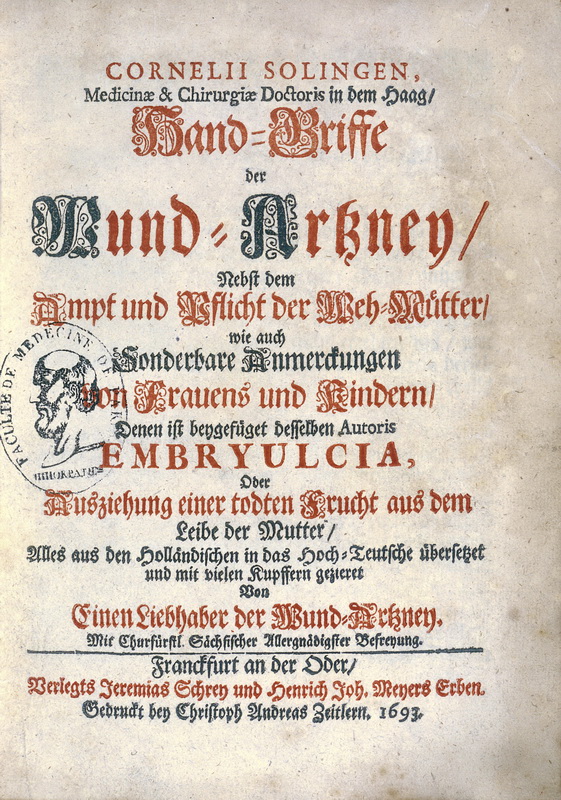 CORNELII SOLINGEN,
Medicinæ & Chirurgiæ Doctoris in dem Haag/
Hand-Griffe
der
Wund-Artzney/
Nebst dem
Ampt und Pflicht der Weh-Mütter/
wie auch
Sonderbare Anmerckungen
von Frauens und Kindern/
Denen ist beygefüget desselben Autoris
EMBRYULCIA,
Oder
Ausziehung einer todten Frucht aus dem
Leibe der Mutter/
Alles aus den Holländischen in das Hoch-Teutsche übersetzet
und mit vielen Kupffern gezieret
Von
Einen Liebhaber der Wund-Artzney.
Mit Churfürstl. Sächsischer Allergnädigster Befreyung.
Franckfurt an der Oder/
Verlegts Jeremias Schrey und Henrich Joh. Meyers Erben.
Gedruckt bey Christoph Andreas Zeitlern. 1693.
FACULTE DE MEDECINE DE PARIS